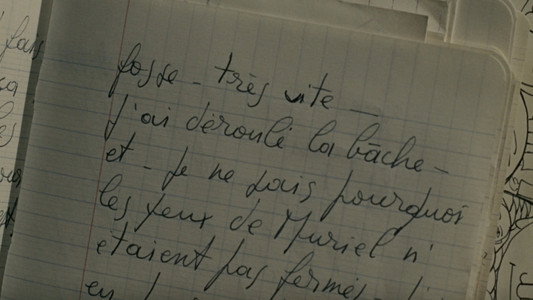 fosse - très vite -
J'ai déroulé la bâche -
et - Je ne sais pourquoi
les yeux de Muriel n'
étaient pas fermés
en